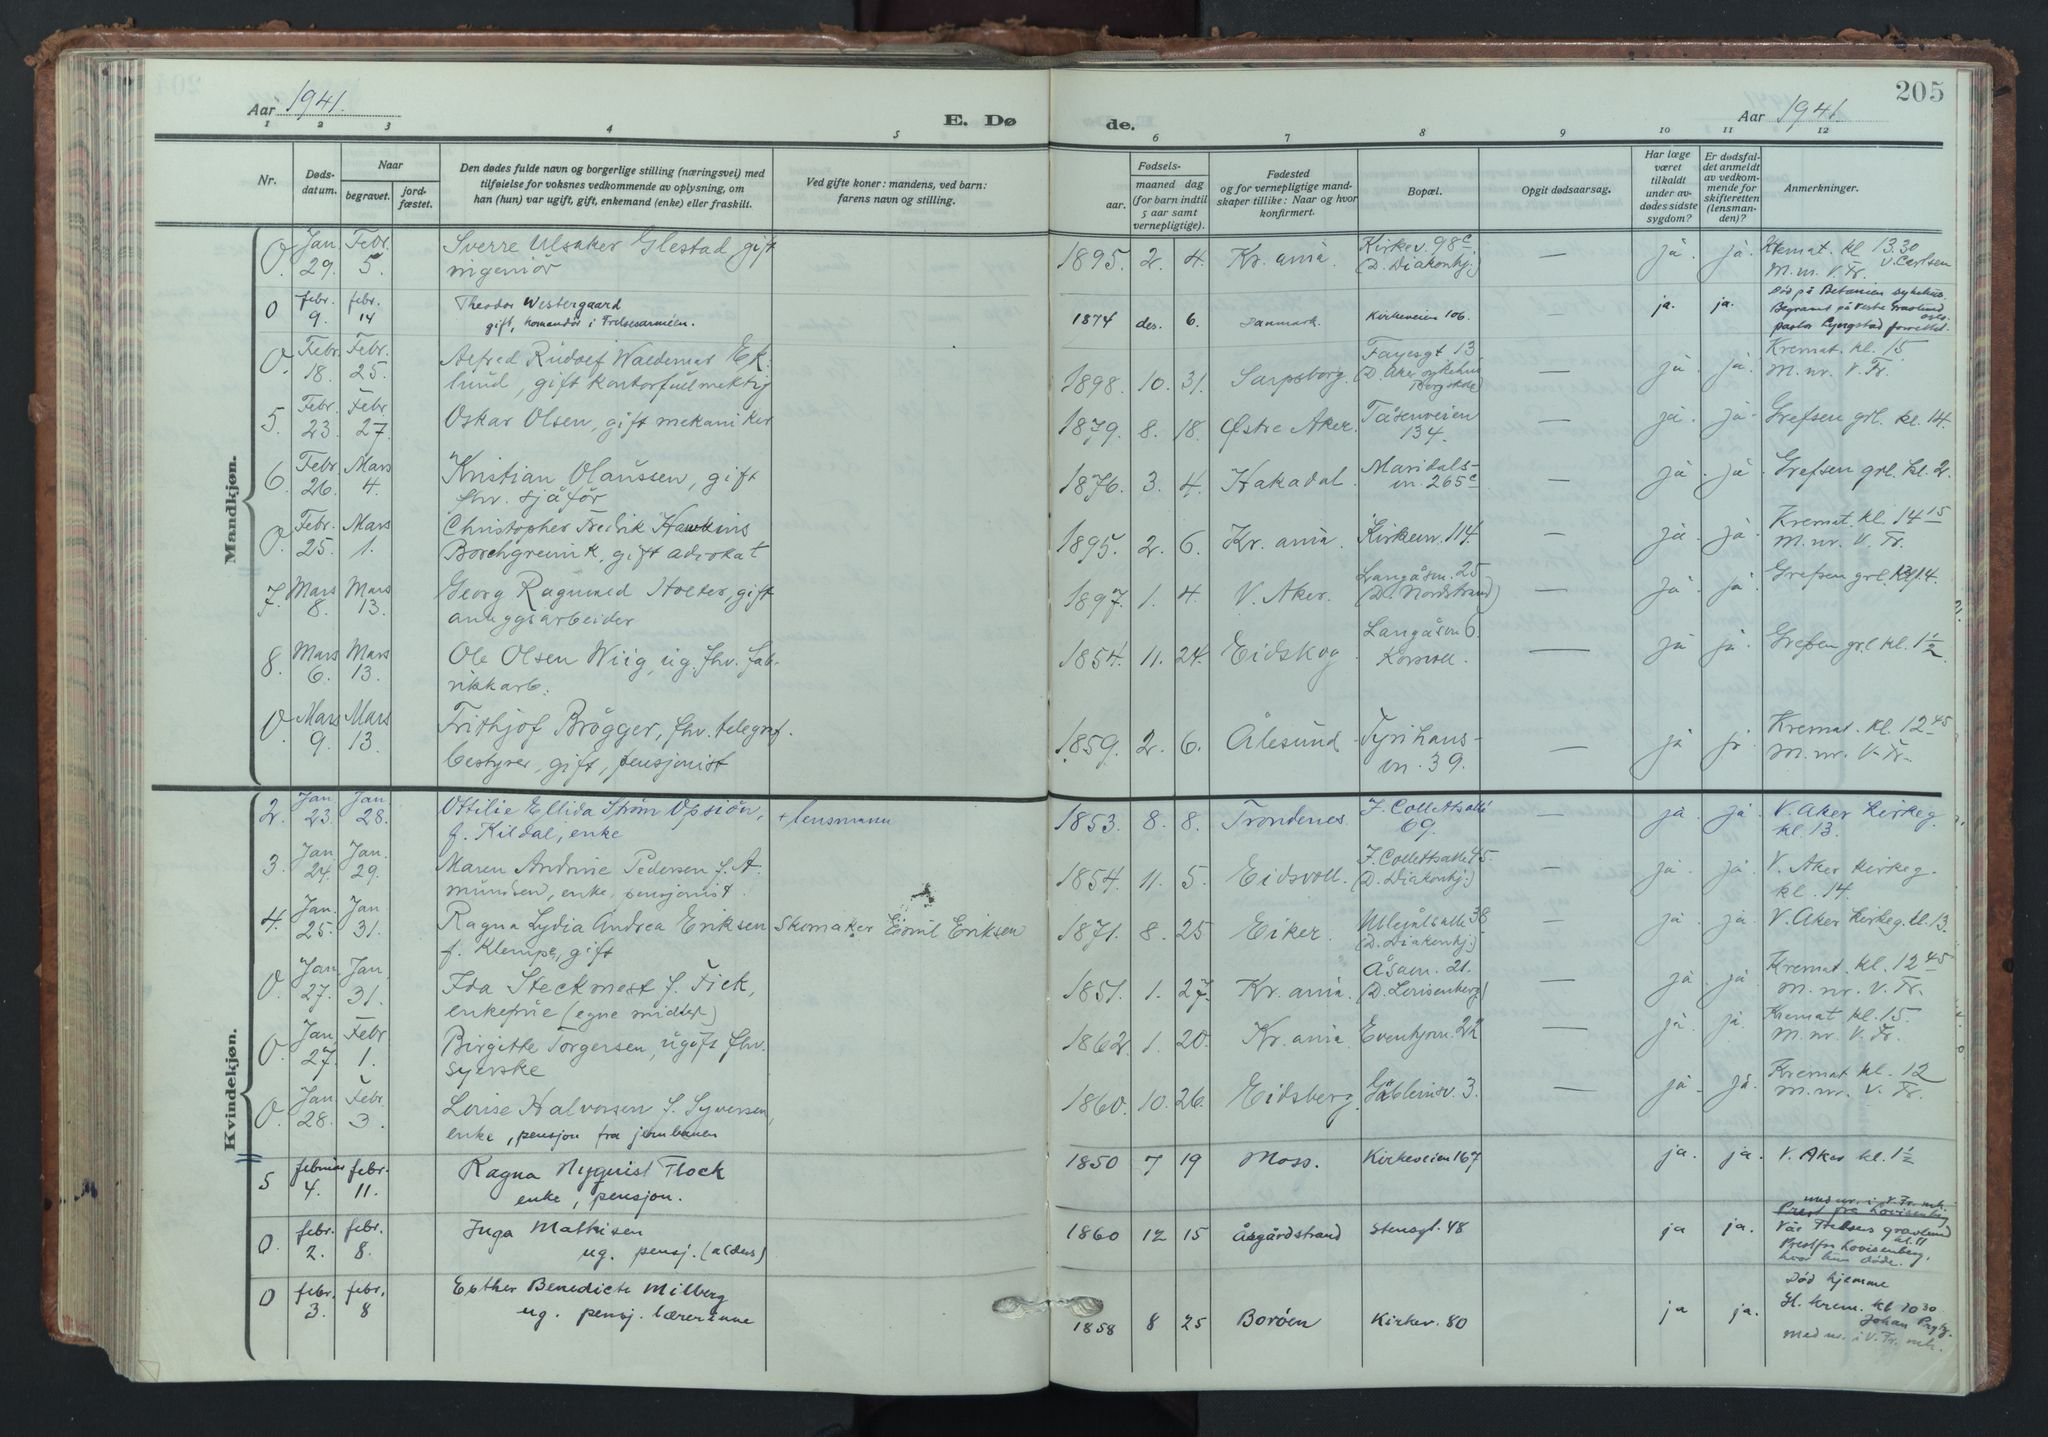 205
Aar 1941.
E. Dø
de.
Aar 1941.
1 2 3 4 5 6 7 8 9 10 11 12
Nr.
Døds-
datum.
Naar
begravet.
jord-
fæstet.
Den dødes fulde navn og borgerlige stilling (næringsvei) med
tilføielse for voksnes vedkommende av oplysning, om
han (hun) var ugift, gift, enkemand (enke) eller fraskilt.
Ved gifte koner: mandens, ved barn:
farens navn og stilling.
Fødsels-
aar.
maaned dag
(for barn indtil
5 aar samt
vernepligtige).
Fødested
og for vernepligtige mand-
skaper tillike: Naar og hvor
konfirmert.
Bopæl.
Opgit dødsaarsag.
Har læge
været
tilkaldt
under av-
dødes sidste
sygdom?
Er dødsfal-
det anmeldt
av vedkom-
mende for
skifteretten
(lensman-
den)?
Anmerkninger.
Mandkjøn.
O. Jan. 29. Febr. 5. Sverre Ulsaker Glestad gift
ingeniør
1895. 2. 4. Kr.ania. Kirkev. 98c
(D. Diakonhj.) — ja. ja. Kremat. kl. 13.30
M.nr. V. Fr. v. Carlsen
O febr. 9. febr. 14 Theodor Westergaard
gift, komandør i Frelsesarmeen.
1874 des. 6. Danmark. Kirkeveien 106. — ja. ja. Død på Betanien sykehus.
Begravet på Vestre Gravlund
Oslo
pastor Lyngstad forrettet.
O. Febr. 18. Febr. 25. Alfred Rudolf Waldemar Ek-
lund, gift kontorfullmektig
1898. 10. 31. Sarpsborg. Fayesgt 13
(D. Aker sykehus
— ja. ja. Kremat. kl. 15.
M.nr. V. Fr.
5. Febr. 23. Febr. 27. Oskar Olsen, gift mekaniker
1879. 8. 18. Østre Aker. Tåsenveien
134. — ja. ja. Grefsen grl. kl. 14.
6. Febr. 26. Mars 4. Kristian Olaussen, gift
fhv. sjåfør
1876. 3. 4. Hakadal. Maridals-
vn. 265c — ja. ja. Grefsen grl. kl. 2.
O. Febr. 25. Mars 1. Christopher Fredrik Hawkins
Borchgrevink, gift advokat
1895. 2. 6. Kr.ania. Kirkevn. 114 — ja. ja. Kremat. kl. 14 15
M.nr. V. Fr.
7. Mars 8. Mars 13. Georg Ragnvald Holter, gift
anleggsarbeider
1897. 1. 4. V. Aker. Langåsvn. 25
(D. Nordstrand) — ja. ja. Grefsen grl. kl 14.
8. Mars 6. Mars 13. Ole Olsen Wiig, ug. fhv. fab-
rikkarb.
1854. 11. 24. Eidskog. Langåsvn 6.
Korsvoll. — ja. ja. Grefsen grl kl. 1 1/2.
O. Mars 9. Mars 13. Frithjof Brøgger, fhv. telegraf-
bestyrer, gift, pensjonist
1859. 2. 6. Ålesund Tyrihans-
vn. 39. — ja ja Kremat. kl. 12 45
M.nr. V. Fr.
Kvindekjøn.
2. Jan 23. Jan 28. Ottilie Ellida Strøm Opsiøn,
f. Kildal, enke
+ lensmann
1853. 8. 8. Trondenes. J. Collettsallé
69. — ja. ja. V. Aker kirkeg.
kl. 13.
3. Jan 24. Jan. 29. Maren Andrine Pedersen f. A-
mundsen, enke, pensjonist.
1854. 11. 5. Eidsvoll. J. Collettsalle 45.
(D. Diakonhj.) — ja. ja. V. Aker kirkeg.
kl. 14.
4. Jan. 25. Jan 31. Ragna Lydia Andrea Eriksen
f. Klempe, gift
Skomaker Emil Eriksen
1871. 8. 25 Eiker. Ullevålsalle 38
(D. Diakonhj.) — ja. ja. V. Aker kirkeg. kl. 13.
O. Jan. 27. Jan. 31. Ida Steckmest f. Fick,
enkefrue (egne midler)
1851. 1. 27. Kr.ania. Åsavn. 21.
(D. Lovisenberg) — ja. ja. Kremat. kl. 12 45
M.nr. V. Fr.
O. Jan 27. Febr 1. Birgitte Torgersen, ugift fhv.
syerske
1862. 1. 20. Kr.ania. Eventyrvn. 22 — ja. ja. Kremat kl. 15
M.nr. V. Fr.
O. Jan 28. Febr 3. Lovise Halvorsen f. Syversen,
enke, pensjon fra jernbanen
1860. 10. 26. Eidsberg. 3. — ja. ja. Kremat kl. 12
M.nr. V. Fr.
5 februar 4. febr. 11. Ragna Nyquist Flock
enke, pensjon.
1850 7 19 Moss. Kirkeveien 167 ja. ja. V. Aker kl. 1 1/2
O febr. 2. febr. 8. Inga Mathisen
ug. pensj. (alders)
1860 12 15 Åsgårdstrand Stensgt. 48 ja ja. med nr. i V. Fr. mk.
Prest fra Lovisenberg
Vår Frelsers gravlund
kl. 11
Prest fra Lovisenberg,
hvor hun døde.
O febr. 3. febr. 8 Esther Benedicte Milberg
ug. pensj. lærerinne
1858 8 25 Borøen Kirkev. 80 ja ja. Død hjemme
H. krem. kl 10 30
Johan
Med nr. i V. Fr. mk.